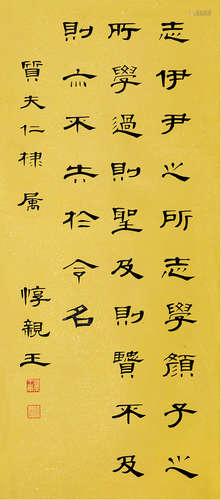 志伊尹之所志學顏子之
所學過則聖及則賢不及
則亦不失於令名
質夫仁棣屬
惇親王